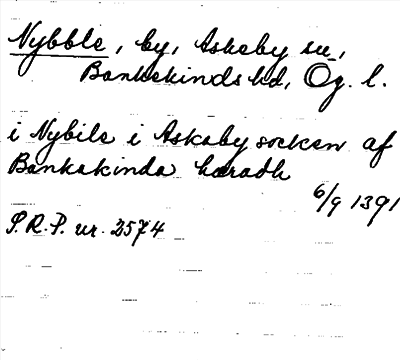 Nybble, by, Askeby sn,
Bankekinds hd, Ög. l.
i Nybile i Askaby socken af
Bankakinda haradh
6/9 1391
S.R.P. nr. 2574